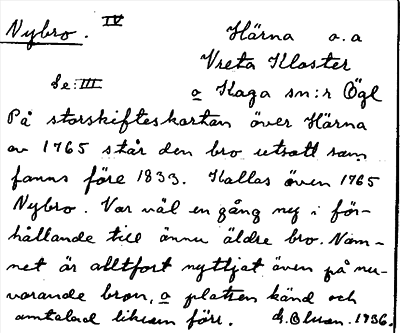 Nybro. IV
Härna a.a
Vreta Kloster
Se: III
o Kaga sn:r Ögl
På storskifteskartan över Härna
av 1765 står den bro utsatt som
fanns före 1833. Kallas även 1765
Nybro. Var väl en gång ny i för-
hållande till ännu äldre bro. Nam-
net är alltfort nyttjat även på nu-
varande bron, o platsen känd och
omtalad liksom förr. G. Olsson. 1936.